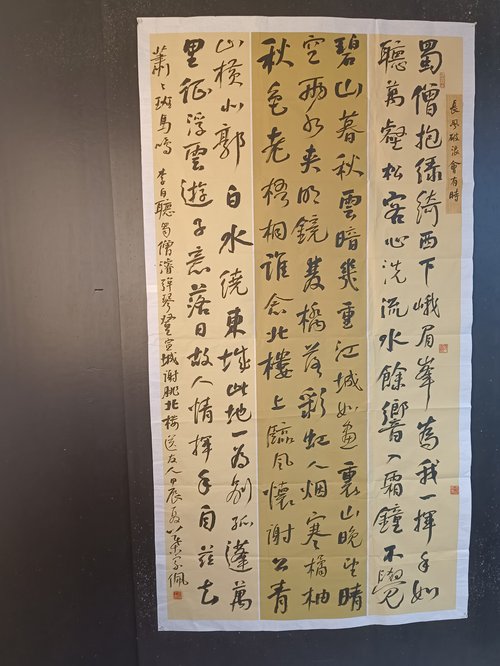 長風破浪會有時
蜀僧抱綠綺西下峨眉峯為我一揮手如
聽萬壑松客心洗流水餘響入霜鐘不覺
碧山暮秋雲暗幾重江城如畫裏山晚望晴
空兩水夾明鏡雙橋落彩虹人烟寒橘柚
秋色老梧桐誰念北樓上臨風懷謝公青
山橫北郭白水繞東城此地一為别孤蓬萬
里征浮雲遊子意落日故人情揮手自茲去
蕭〻班馬鳴 李白聽蜀僧濬彈琴登宣城謝朓北樓送友人甲辰夏